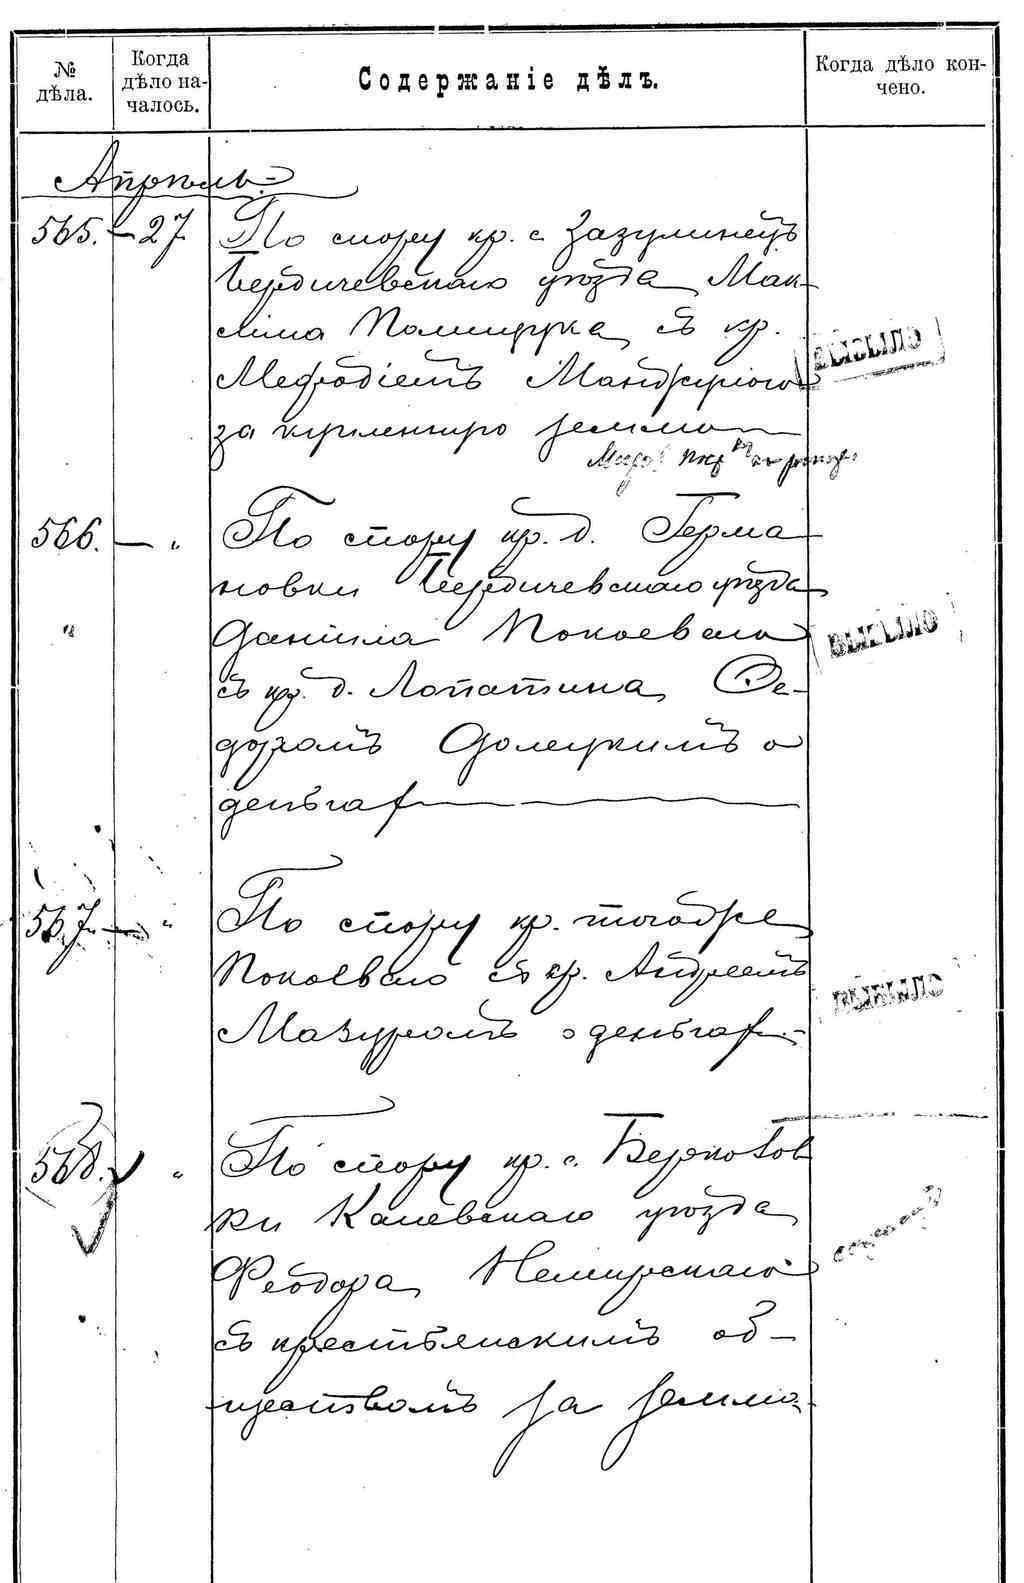 № дѣла.
Когда дѣло на-
чалось.
Содержаніе дѣлъ.
Когда дѣло кон-
чено.
Апрѣль
565. — 27 По спору кр. с Зазулинецъ
Бердичевскаго уѣзда Мак-
сима Полищука съ кр.
Мефодіемъ
за купленную землю
566. — " По спору кр. д. Герма
новки Бердичевскаго уѣзда
" Данила Покоеваго
съ кр. д. Лопатина Фе-
доромъ Долецкимъ о
деньгах
567. — " По спору кр. тогоже
Покоеваго съ кр. Андреемъ
Мазуромъ о деньгах
568. " По спору кр. с. Берковов
ки Каневскаго уѣзда
Феодора Немирскаго
съ крестьянскимъ об-
ществомъ за землю
ВЫБЫЛО
ВЫБЫЛО
ВЫБЫЛО